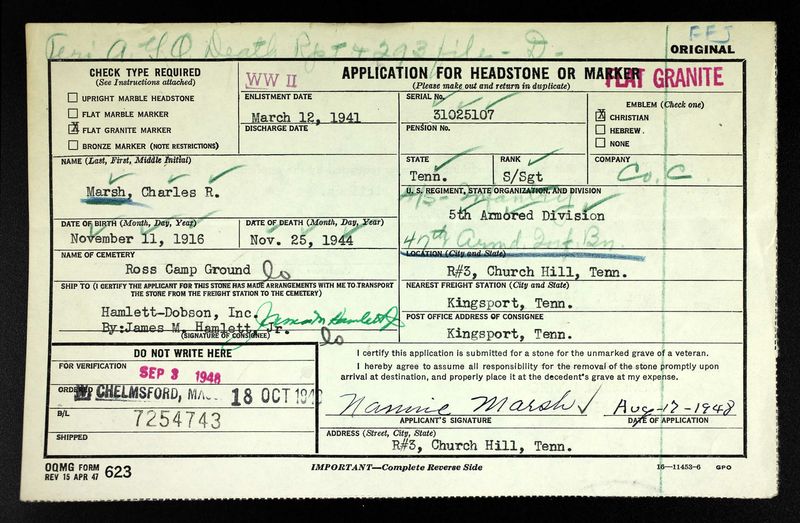 Veri A.G.O Death Rpt & 293 file - D -
EFJ
ORIGINAL
CHECK TYPE REQUIRED
(See Instructions attached)
UPRIGHT MARBLE HEADSTONE
FLAT MARBLE MARKER
X FLAT GRANITE MARKER
BRONZE MARKER (NOTE RESTRICTIONS)
WW II
APPLICATION FOR HEADSTONE OR MARKER
FLAT GRANITE
(Please make out and return in duplicate)
ENLISTMENT DATE
March 12, 1941
DISCHARGE DATE
SERIAL No.
31025107
PENSION No.
EMBLEM (Check one)
X CHRISTIAN
HEBREW.
NONE
NAME (Last, First, Middle Initial)
Marsh, Charles R.
STATE
Tenn.
RANK
S/Sgt
COMPANY
Co. C
U. S. REGIMENT, STATE ORGANIZATION, AND DIVISION
5th Armored Division
47th Armd. Inf. Bn.
DATE OF BIRTH (Month, Day, Year)
November 11, 1916
DATE OF DEATH (Month, Day, Year)
Nov. 25, 1944
NAME OF CEMETERY
Ross Camp Ground
LOCATION (City and State)
R#3, Church Hill, Tenn.
SHIP TO (I CERTIFY THE APPLICANT FOR THIS STONE HAS MADE ARRANGEMENTS WITH ME TO TRANSPORT
THE STONE FROM THE FREIGHT STATION TO THE CEMETERY)
Hamlett-Dobson, Inc.
By:James M. Hamlett, Jr.
James M Hamlett Jr
(SIGNATURE OF CONSIGNEE)
NEAREST FREIGHT STATION (City and State)
Kingsport, Tenn.
POST OFFICE ADDRESS OF CONSIGNEE
Kingsport, Tenn.
DO NOT WRITE HERE
FOR VERIFICATION
SEP 3 1948
ORDERED
CHELMSFORD, MASS. 18 OCT 1948
B/L
7254743
SHIPPED
I certify this application is submitted for a stone for the unmarked grave of a veteran.
I hereby agree to assume all responsibility for the removal of the stone promptly upon
arrival at destination, and properly place it at the decedent's grave at my expense.
Nannie Marsh
Aug-17-1948
APPLICANT'S SIGNATURE
DATE OF APPLICATION
ADDRESS (Street, City, State)
R#3, Church Hill, Tenn.
OQMG FORM
REV 15 APR 47
623
IMPORTANT—Complete Reverse Side
16—11453-6 GPO